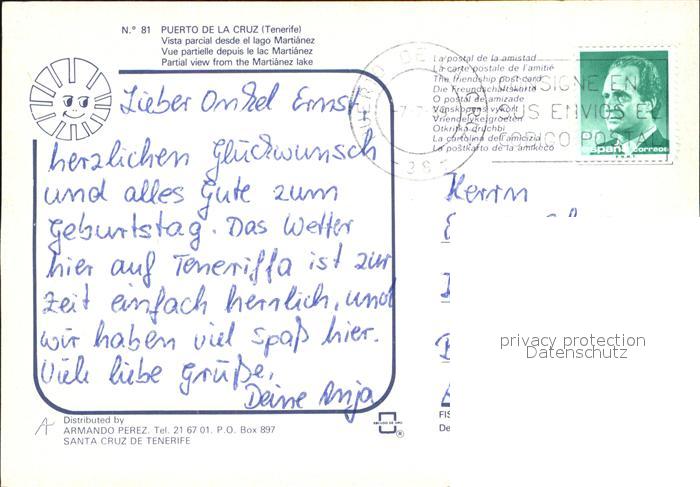 N.° 81 PUERTO DE LA CRUZ (Tenerife)
Vista parcial desde el lago Martiánez
Vue partielle depuis le lac Martiánez
Partial view from the Martiánez lake
Lieber Onkel Ernst,
herzlichen Glückwunsch
und alles Gute zum
Geburtstag. Das Wetter
hier auf Teneriffa ist zur
Zeit einfach herrlich, und
wir haben viel Spaß hier.
Viele liebe Grüße,
Deine Anja
Distributed by
ARMANDO PEREZ. Tel. 21 67 01. P.O. Box 897
SANTA CRUZ DE TENERIFE
La postal de la amistad
La carte postale de l'amitié
The friendship post card
Die Freundschaftskarte
O postal de amizade
Vänskapens vykort
Vriendelykegroeten
Otkritka druchbi
La cartolina dell'amicizia
La postkarto de la amikeco
CONSIGNE EN
SUS ENVIOS EL
CODIGO POSTAL
España correos
Herrn
privacy protection
Datenschutz